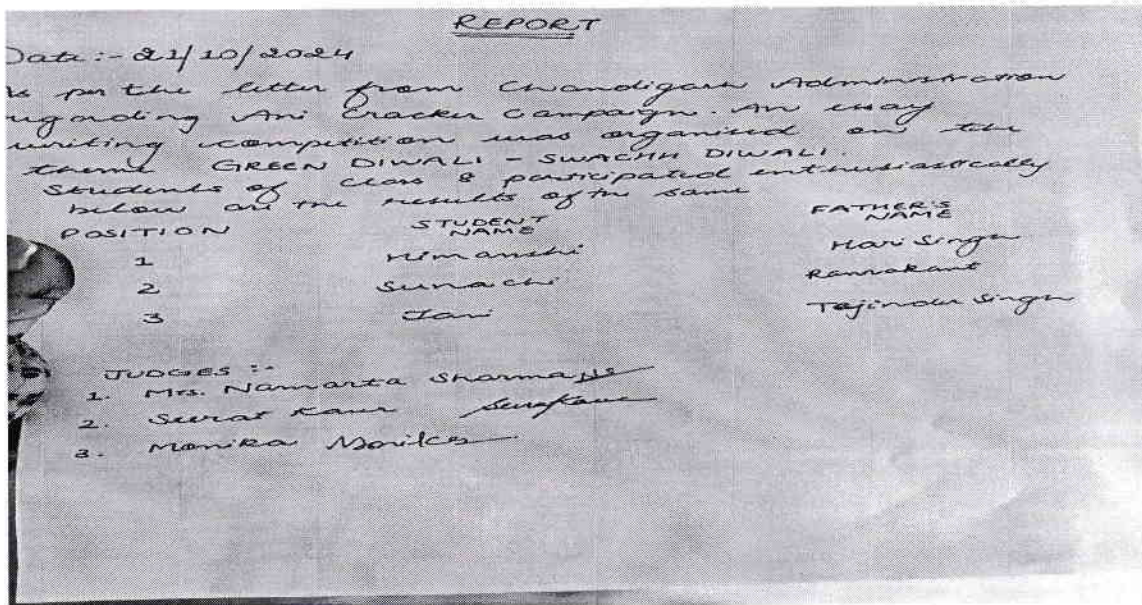 REPORT
Date :- 21/10/2024
As per the letter from Chandigarh Administration
regarding Ani Cracker Campaign. An essay
writing competition was organised on the
theme GREEN DIWALI - SWACHH DIWALI.
Students of class 8 participated enthusiastically
below are the results of the same
POSITION STUDENT NAME FATHER'S NAME
1 Himanshi Hari Singh
2 Sunachi Ramakant
3 Tajinder Singh
JUDGES :-
1. Mrs. Namarta Sharma
2. Seerat Kaur
3. Monika Monika